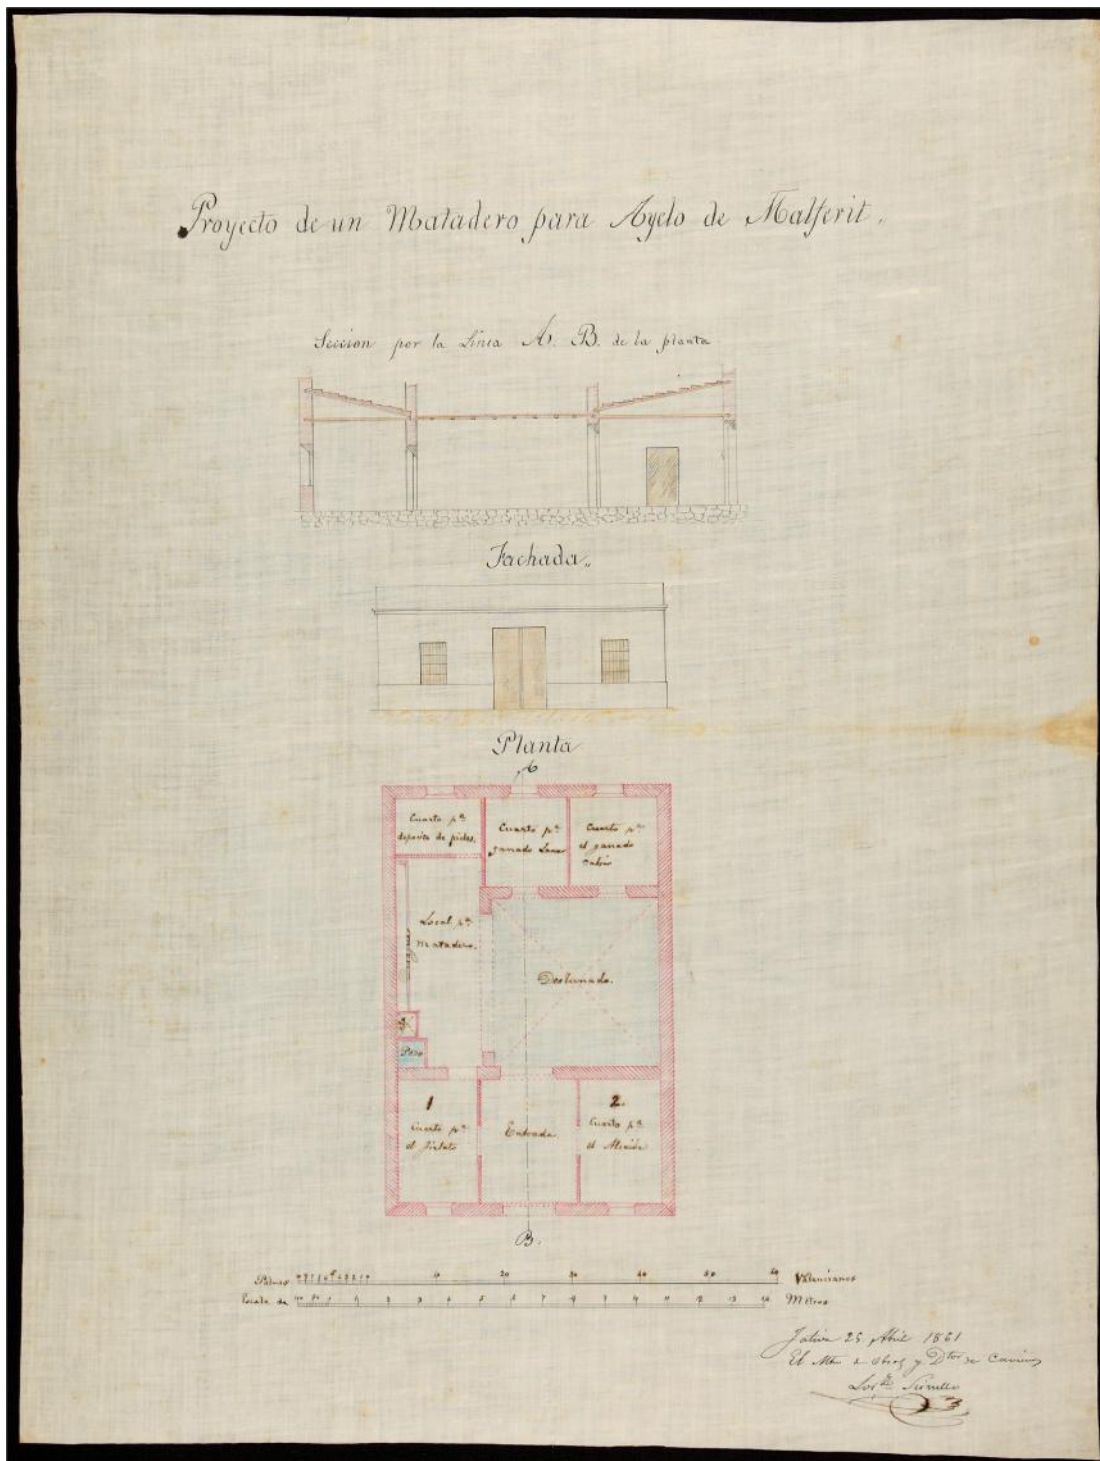 Proyecto de un Matadero para Ayelo de Malferit.
Seccion por la Linea A. B. de la planta
Fachada
Planta
A
Cuarto pª
deposito de pieles.
Cuarto pª
ganado Lanar
Cuarto pª
el ganado
cabrio
Local pª
Matadero.
Deslunado.
Pozo
1
Cuarto pª
el fielato
Entrada
2.
Cuarto pª
el Alcaide
B.
Palmos 10 20 30 40 50 60 Valencianos
Escala de Metros
Jativa 25 Abril 1861
El Mtro de Obras y Dtor de Caminos